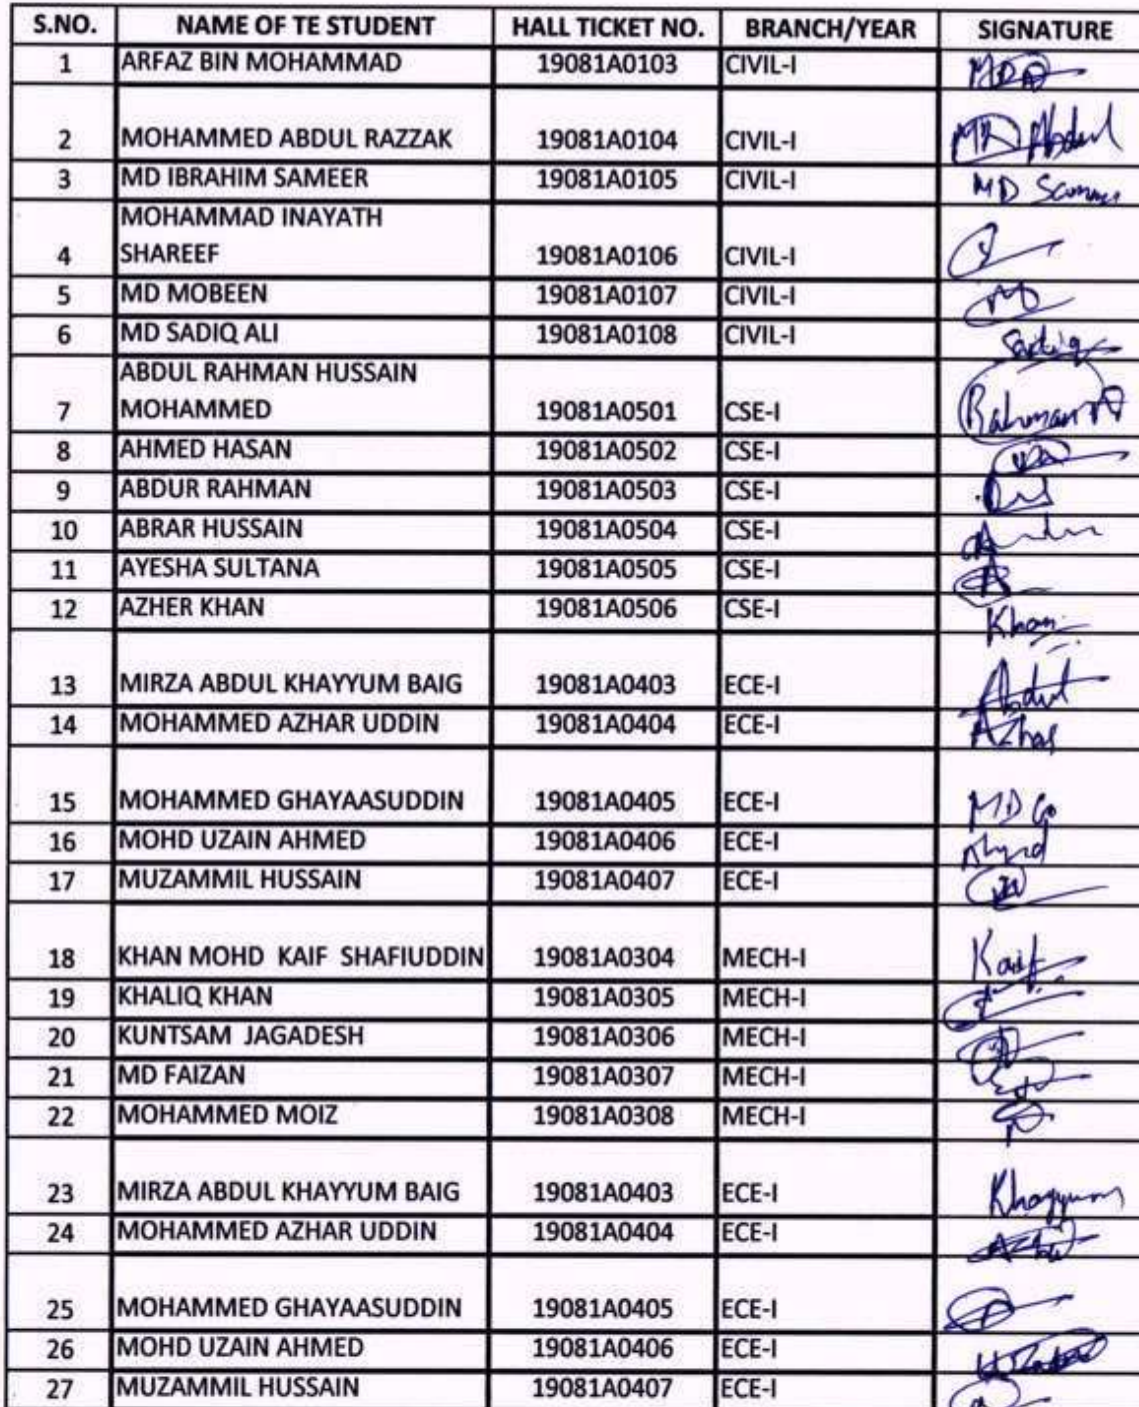 S.NO. NAME OF TE STUDENT HALL TICKET NO. BRANCH/YEAR SIGNATURE
1 ARFAZ BIN MOHAMMAD 19081A0103 CIVIL-I
2 MOHAMMED ABDUL RAZZAK 19081A0104 CIVIL-I Abdul
3 MD IBRAHIM SAMEER 19081A0105 CIVIL-I MD
MOHAMMAD INAYATH
4 SHAREEF 19081A0106 CIVIL-I
5 MD MOBEEN 19081A0107 CIVIL-I
6 MD SADIQ ALI 19081A0108 CIVIL-I Sadiq
ABDUL RAHMAN HUSSAIN
7 MOHAMMED 19081A0501 CSE-I Rahman
8 AHMED HASAN 19081A0502 CSE-I
9 ABDUR RAHMAN 19081A0503 CSE-I
10 ABRAR HUSSAIN 19081A0504 CSE-I
11 AYESHA SULTANA 19081A0505 CSE-I
12 AZHER KHAN 19081A0506 CSE-I Khan
13 MIRZA ABDUL KHAYYUM BAIG 19081A0403 ECE-I Abdul
14 MOHAMMED AZHAR UDDIN 19081A0404 ECE-I Azhar
15 MOHAMMED GHAYAASUDDIN 19081A0405 ECE-I MD
16 MOHD UZAIN AHMED 19081A0406 ECE-I
17 MUZAMMIL HUSSAIN 19081A0407 ECE-I
18 KHAN MOHD KAIF SHAFIUDDIN 19081A0304 MECH-I Kaif
19 KHALIQ KHAN 19081A0305 MECH-I
20 KUNTSAM JAGADESH 19081A0306 MECH-I
21 MD FAIZAN 19081A0307 MECH-I
22 MOHAMMED MOIZ 19081A0308 MECH-I
23 MIRZA ABDUL KHAYYUM BAIG 19081A0403 ECE-I Khayyum
24 MOHAMMED AZHAR UDDIN 19081A0404 ECE-I
25 MOHAMMED GHAYAASUDDIN 19081A0405 ECE-I
26 MOHD UZAIN AHMED 19081A0406 ECE-I
27 MUZAMMIL HUSSAIN 19081A0407 ECE-I